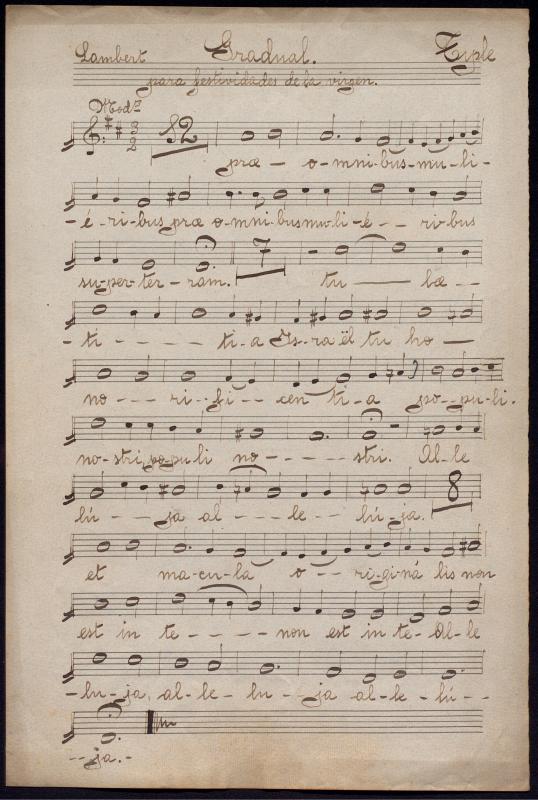 Lambert Gradual. Tiple
para festividades de la virgen.
Modto
12
præ - o-mni-bus-mu-li-
-é-ri-bus præ o-mni-bus mu-li-é- - ri-bus
7
su-per-ter-ram. tu — læ - -
- ti - - - - ti-a Is-ra ël tu ho —
no - - - - ri-fi-cen-ti-a po-pu-li.
no-stri, po-pu-li no - - - - stri. Al-le
8
lú - - ja al - - - le - lú-ja.
et ma-cu-la o - - ri-gi-ná lis non
est in te - - - - non est in te- Al-le
-lu-ja, al-le-lu - ja al-le-lú - -
- -ja.-